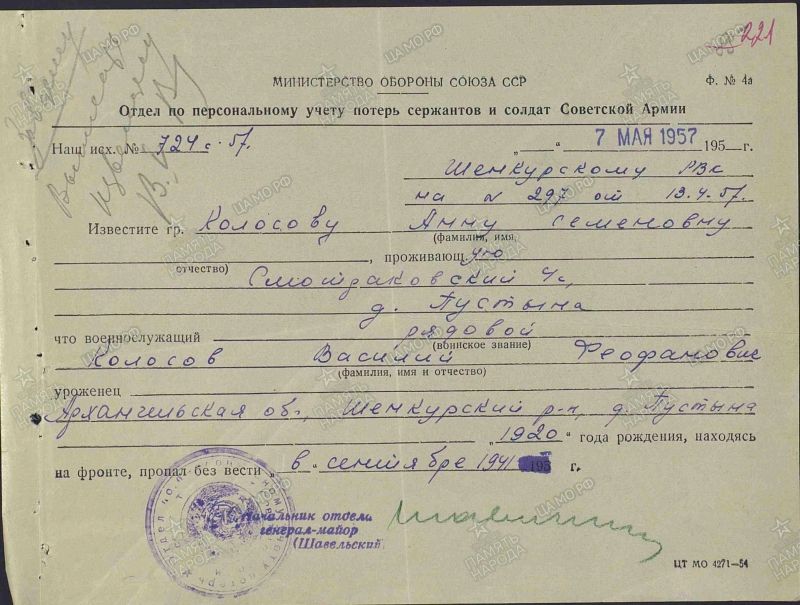 221
МИНИСТЕРСТВО ОБОРОНЫ СОЮЗА ССР
Ф. № 4а
Отдел по персональному учету потерь сержантов и солдат Советской Армии
Наш исх. № 724с·57.
„ “ 7 МАЯ 1957 195 — г.
Шенкурскому РВК
на № 297 от 13.4.57.
Известите гр. Колосову Анну Семеновну
(фамилия, имя,
отчество)
, проживающ ую
д. Пустына
что военнослужащий рядовой
(воинское звание)
Колосов Василий Феофанович
(фамилия, имя и отчество)
уроженец
Архангельская об., Шенкурский р-н, д. Пустына
„ 1920 “ года рождения, находясь
на фронте, пропал без вести в сентябре 1941 г.
Начальник отдела
генерал-майор
(Шавельский
ЦТ МО 4271—54
ПАМЯТЬ НАРОДА
ЦАМО.РФ